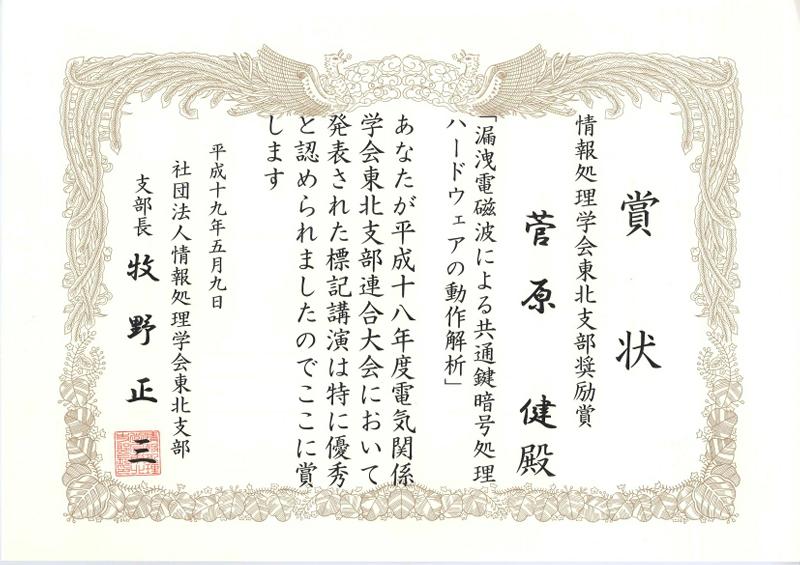 賞状
情報処理学会東北支部奨励賞
菅原 健殿
「漏洩電磁波による共通鍵暗号処理
ハードウェアの動作解析」
あなたが平成十八年度電気関係
学会東北支部連合大会において
発表された標記講演は特に優秀
と認められましたのでここに賞
します
平成十九年五月九日
社団法人情報処理学会東北支部
支部長 牧野正三